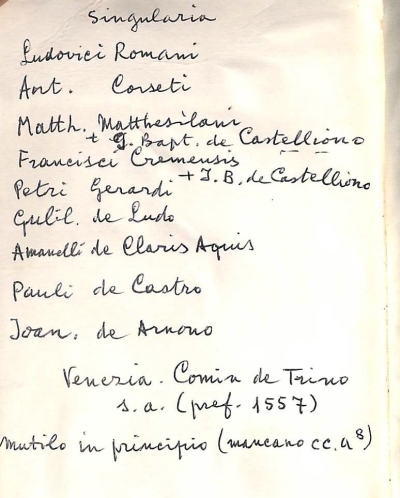 Singularia
Ludovici Romani
Ant. Corseti
Matth. Matthesilani
+ G. Bapt. de Castelliono
Francisci Cremensis
Petri Gerardi + I. B. de Castelliono
Gulil. de Ludo
Amanelli de Claris Aquis
Pauli de Castro
Joan. de Arnono
Venezia. Comin de Trino
s. a. (pref. 1557)
mutilo in principio (mancano cc. a⁸)